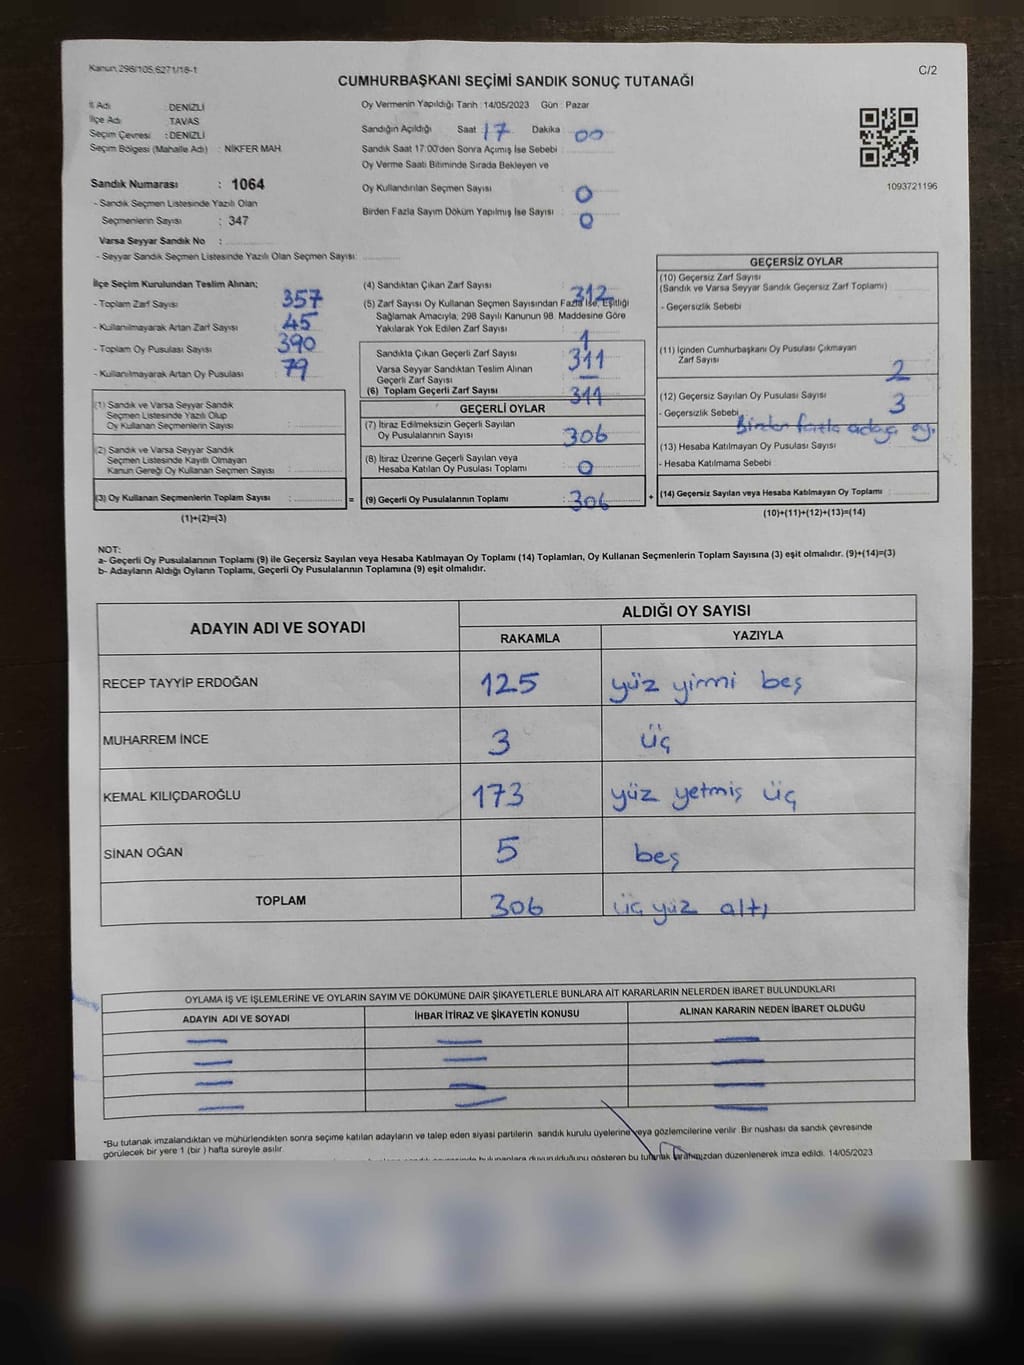 Kanun:298/105,6271/18-1
C/2
CUMHURBAŞKANI SEÇİMİ SANDIK SONUÇ TUTANAĞI
İl Adı : DENİZLİ
İlçe Adı : TAVAS
Seçim Çevresi : DENİZLİ
Seçim Bölgesi (Mahalle Adı) : NİKFER MAH.
Oy Vermenin Yapıldığı Tarih :14/05/2023 Gün : Pazar
Sandığın Açıldığı Saat 17 Dakika 00
Sandık Saat 17:00'den Sonra Açımış İse Sebebi
Oy Verme Saati Bitiminde Sırada Bekleyen ve
Oy Kullandırılan Seçmen Sayısı : 0
Birden Fazla Sayım Döküm Yapılmış İse Sayısı : 0
1093721196
Sandık Numarası : 1064
- Sandık Seçmen Listesinde Yazılı Olan
Seçmenlerin Sayısı : 347
Varsa Seyyar Sandık No :
- Seyyar Sandık Seçmen Listesinde Yazılı Olan Seçmen Sayısı:
İlçe Seçim Kurulundan Teslim Alınan;
- Toplam Zarf Sayısı 357
- Kullanılmayarak Artan Zarf Sayısı 45
- Toplam Oy Pusulası Sayısı 390
- Kullanılmayarak Artan Oy Pusulası 79
(1) Sandık ve Varsa Seyyar Sandık
Seçmen Listesinde Yazılı Olup
Oy Kullanan Seçmenlerin Sayısı :
(2) Sandık ve Varsa Seyyar Sandık
Seçmen Listesinde Kayıtlı Olmayan
Kanun Gereği Oy Kullanan Seçmen Sayısı :
(3) Oy Kullanan Seçmenlerin Toplam Sayısı : =
(1)+(2)=(3)
(4) Sandıktan Çıkan Zarf Sayısı : 312
(5) Zarf Sayısı Oy Kullanan Seçmen Sayısından Fazla İse, Eşitliği
Sağlamak Amacıyla, 298 Sayılı Kanunun 98. Maddesine Göre
Yakılarak Yok Edilen Zarf Sayısı : 1
Sandıkta Çıkan Geçerli Zarf Sayısı : 311
Varsa Seyyar Sandıktan Teslim Alınan
Geçerli Zarf Sayısı : —
(6) Toplam Geçerli Zarf Sayısı : 311
GEÇERLİ OYLAR
(7) İtiraz Edilmeksizin Geçerli Sayılan
Oy Pusulalarının Sayısı : 306
(8) İtiraz Üzerine Geçerli Sayılan veya
Hesaba Katılan Oy Pusulası Toplamı : 0
(9) Geçerli Oy Pusulalarının Toplamı : 306 +
GEÇERSİZ OYLAR
(10) Geçersiz Zarf Sayısı
(Sandık ve Varsa Seyyar Sandık Geçersiz Zarf Toplamı)
- Geçersizlik Sebebi
(11) İçinden Cumhurbaşkanı Oy Pusulası Çıkmayan
Zarf Sayısı : 2
(12) Geçersiz Sayılan Oy Pusulası Sayısı : 3
- Geçersizlik Sebebi Birden fazla adaya oy.
(13) Hesaba Katılmayan Oy Pusulası Sayısı
- Hesaba Katılmama Sebebi
(14) Geçersiz Sayılan veya Hesaba Katılmayan Oy Toplamı :
(10)+(11)+(12)+(13)=(14)
NOT:
a- Geçerli Oy Pusulalarının Toplamı (9) ile Geçersiz Sayılan veya Hesaba Katılmayan Oy Toplamı (14) Toplamları, Oy Kullanan Seçmenlerin Toplam Sayısına (3) eşit olmalıdır. (9)+(14)=(3)
b- Adayların Aldığı Oyların Toplamı, Geçerli Oy Pusulalarının Toplamına (9) eşit olmalıdır.
ADAYIN ADI VE SOYADI
ALDIĞI OY SAYISI
RAKAMLA YAZIYLA
RECEP TAYYİP ERDOĞAN 125 yüz yirmi beş
MUHARREM İNCE 3 üç
KEMAL KILIÇDAROĞLU 173 yüz yetmiş üç
SİNAN OĞAN 5 beş
TOPLAM 306 üç yüz altı
OYLAMA İŞ VE İŞLEMLERİNE VE OYLARIN SAYIM VE DÖKÜMÜNE DAİR ŞİKAYETLERLE BUNLARA AİT KARARLARIN NELERDEN İBARET BULUNDUKLARI
ADAYIN ADI VE SOYADI İHBAR İTİRAZ VE ŞİKAYETİN KONUSU ALINAN KARARIN NEDEN İBARET OLDUĞU
— — —
— — —
— — —
— — —
*Bu tutanak imzalandıktan ve mühürlendikten sonra seçime katılan adayların ve talep eden siyasi partilerin sandık kurulu üyelerine veya gözlemcilerine verilir. Bir nüshası da sandık çevresinde
görülecek bir yere 1 (bir ) hafta süreyle asılır.
bulunanlara duyurulduğunu gösteren bu tutanak tarafımızdan düzenlenerek imza edildi. 14/05/2023